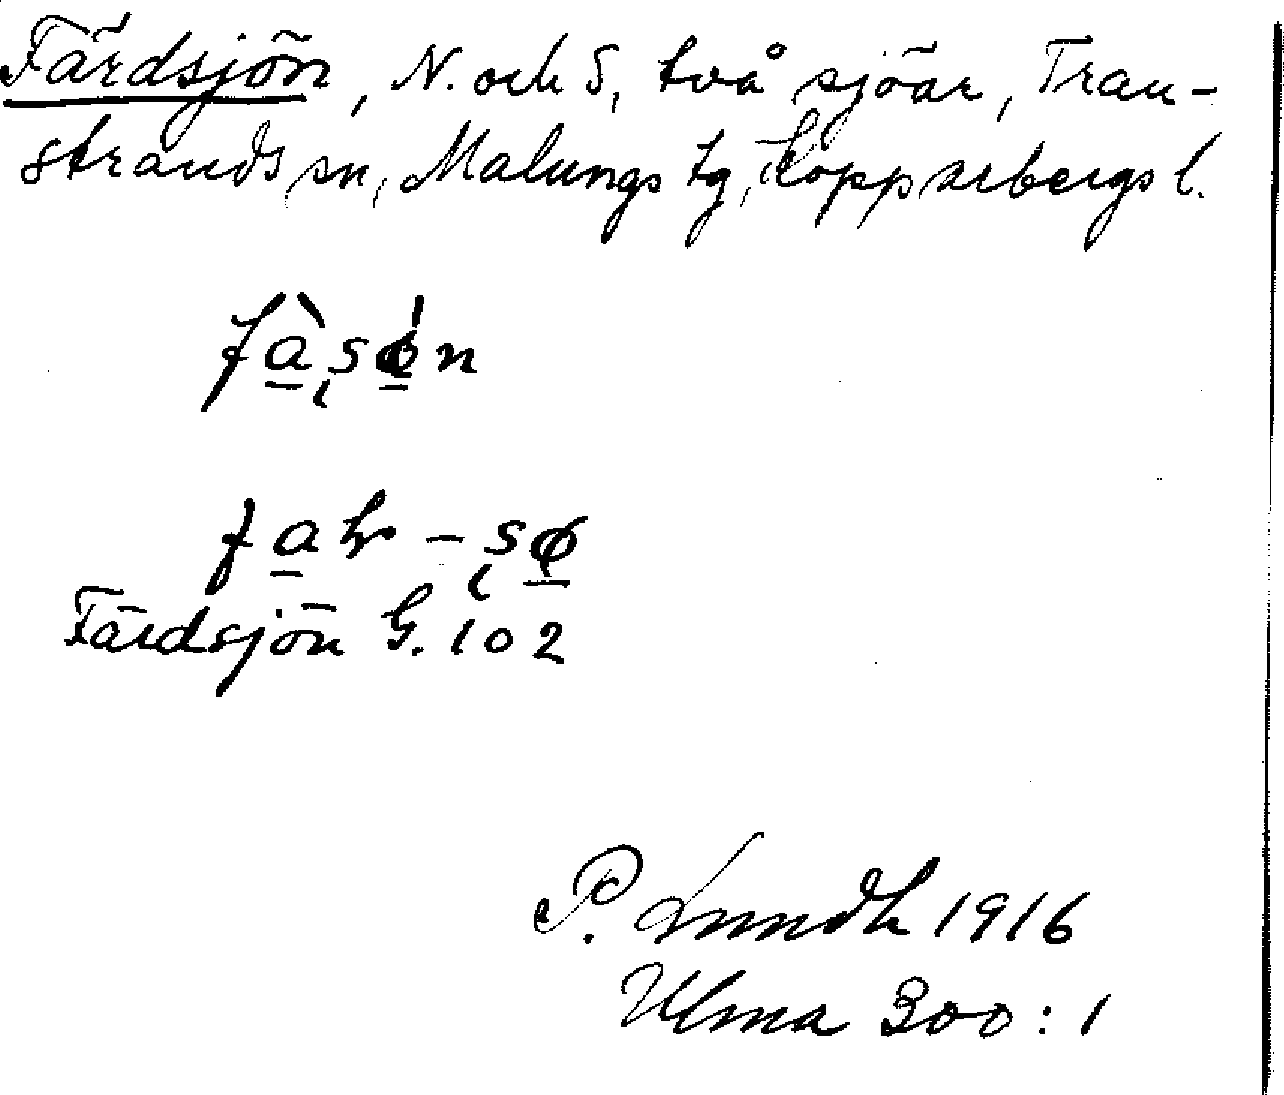 Färdsjön, N. och S, två sjöar, Tran-
strands sn, Malungs tg, Kopparbergs l.
Färdsjön G. 102
P. Lundh 1916
Ulma 300:1